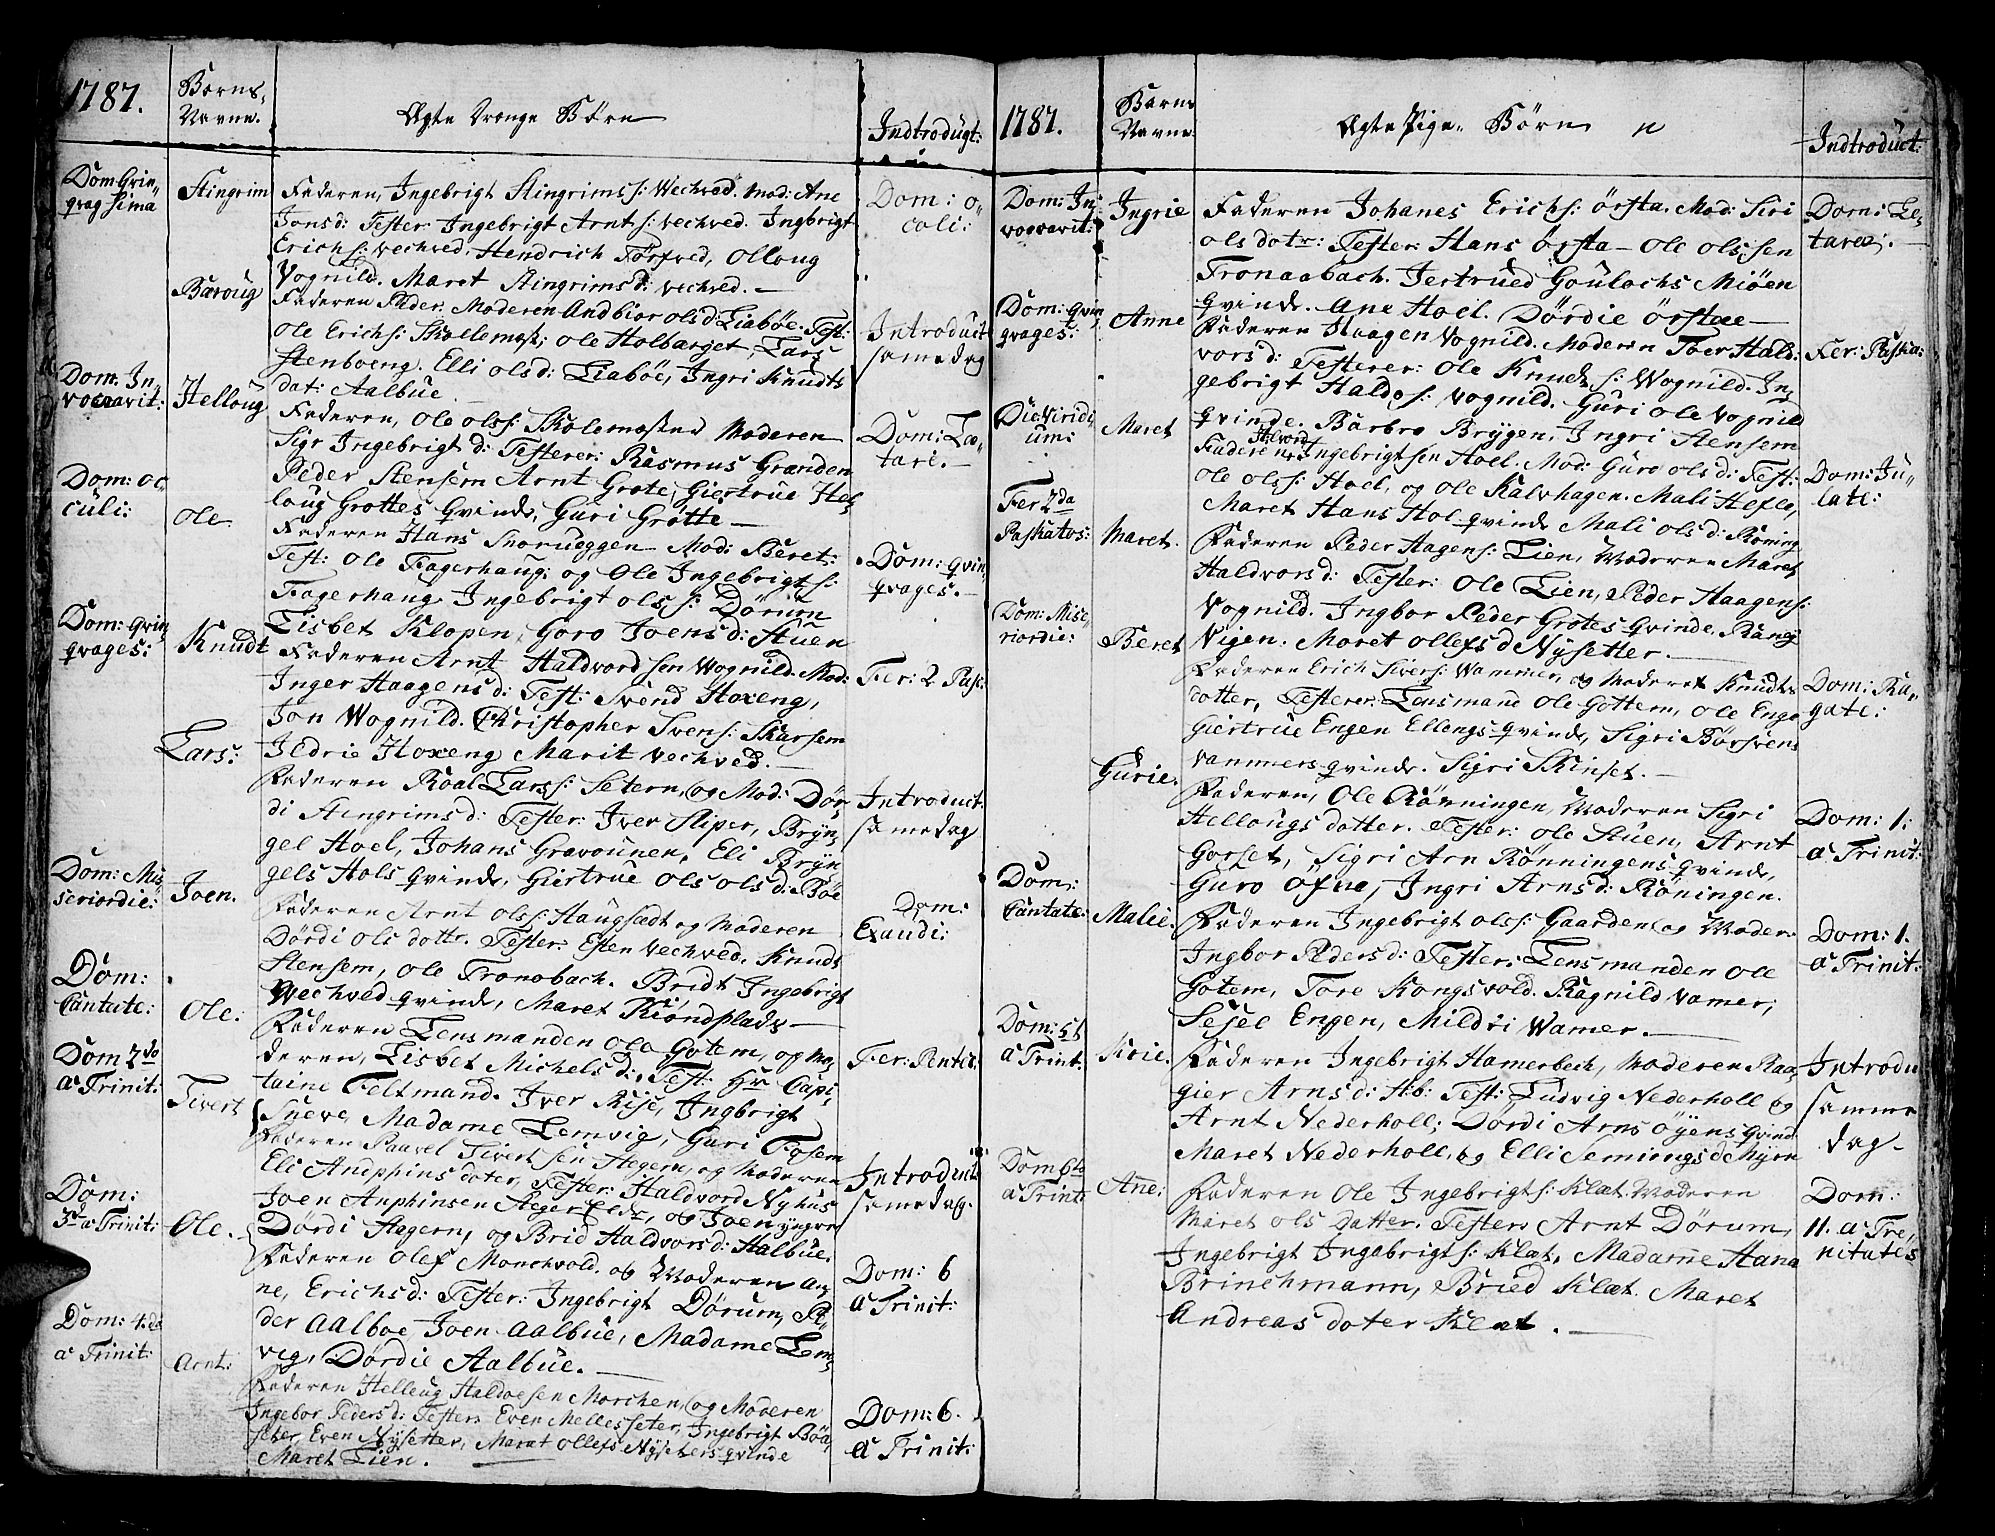 1787.
Børns,
Navne.
Ægte Drenge Børn
Indtrodugt:
Dom Qvin,
qvag sima
Stingrim
Faderen, Ingebrigt Stingrims s: Vechved. Mod: Ane
Jonsd: Tester Ingebrigt Arnt s: vechved. Ingbrigt
Erich s: vechved, Hendrich Forsved, Olloug
Vognild. Maret Stingrims d: vechved.–
Dom: o,,
coli:
Baroug
Faderen Peder. Moderen Andbior ols d: Liaböe. Test:
Ole Erich s: Skollemoss; ole Holbarget, Lars
Stenboeng. Elli ols d: Liaböe, Ingri Knudts
dat: Aalbue
Introduct
samedag
Dom. In,
vocavit:
Helloug
Faderen, Ole ols s: Skolemosned Moderen
Sigr Ingebrigt d: Testerer: Rasmus Granden
Peder Stensem Arnt Grote, Giertrue Hel,
loug Grottes qvinde, Guri Grotte –
Dom: Læ,
tari.–
Dom: oc
culi:
ole
Faderen Hans Snorueggen Mod: Beret:
Test: Ole Fagerhaug: og Ole Ingebrigt s:
Fagerhaug. Ingebrigt ols s: Dörum
Lisbet Klopen, Goro Joens d: Stuen
Dom: qvin,
qvages.–
Dom: qvin
qvages:
Knudt
Faderen Arnt Haldvord sen Vognild. Mod:
Inger Haagens d: Test: Svend Hoxeng,
Jon Wognild. Christopher Svens: Skarsem
Ildrie Hoxeng Marit Vechved.–
Fer: 2 Pas:
Lars:
Faderen Roal Lars s: Setern, og Mod: Dör,
di Stengrims d: Tester: Iver Sliper, Bryn,
gel Hoel, Johans Gravounen, Eli Bryn
gels Hols qvinde, Giertrue Ols ols d: Böe
Introduct
samedag
Dom: Mis
seriordie:
Joen.
Faderen Arnt ols s: Haugsadt og Maderen
Dördi Ols dottr. Tester: Esten Vechved, Knuds
Stensem, ole Tronobach. Bridt Ingebrigt
Wechved qvinde, Maret Kiöndplads–
Dom:
Exaudi:
Dom:
Cantate:
Ole:
Faderen Lensmanden ole Gotem, og Mo
deren, Lisbet Michels d: Test: Hr Capi:
taine Feltmand. Iver Rise, Ingbrigt
Sneve, Madame Lemvig, Guri Fosem
Fer: Pentec:
Dom 2do
a Trinit:
Sivert
Faderen Paavel Sivert sen Hegem, og Moderen
Eli Andphins dater, Tester: Haldvord Nyhus
Joen Anphinsen Hegerfeldr, og Joen yngre
Dördi Hagern, og Brid Haldvors d: Halbue.
Introduct
samedag.
Dom:
3t a Trinit:
Ole.
Faderen Olef Monchvold. og Moderen An,
ne, Erichs d: Tester: Ingebrigt Dörum, Pe,
der Aalboe, Joen Aalbue, Madame Lem,
vig, Dördie Aalbue.–
Dom: 6
a Trinit:
Dom: 4.de
a Trinit:
Arnt:
Faderen Helleug Haldoesen Morchen, og Moderen
Ingebor Peders d: Testers Even Mellesseter, Ingebrigt Böa,
seter, Even Nysetter, Marat ollefs Nysetersqvinde
Maret Lien.
Dom: 6.
a Trinit:
1787.
Barns
Navne
Ægte Pige,, Börn
Indtroduct:
Dom: In,
vocavit:
Ingrie
Faderen Johanes Erichs: örsta. Mod: Siri
olsdatr: Tester: Hans örsta – Ole Olssen
Tronaabach. Jertrued Goulachs Miöen
qvinde. Ane Hoel. Dördie örstae–
Dom: Le,
taree:–
Dom: Qvin
qvages:
Anne
Faderen Haagen Vognild. Moderen Toer Hald:
vors d: Testerer: Ole Knud s: Wognild. In,
gebrigt Haldo s: Vognild. Guri Ole Vognild
qvinde. Barbro Brygen, Ingri Stensem
Fer: Paskia:
Die Viridi
um:
Maret
Faderen Halvord Ingebrigtsen Hoel. Mod: Guro ols d: Test:
ole ols s: Hoel, og Ole Kalvhagen. Mali Hefle,
Maret Hans Hol qvinde Mali ols d: Röning
Dom: Ju,,
late:
Fer 2da
Paskatos:
Maret.
Faderen Peder Hagens: Lien, Moderen Maret
Haldvors d: Tester: Ole Lien, Peder Haagens:
Vognild. Ingbor Peder Grotes qvinde. Rangi
Vigen. Maret ollefs d Nysetter.–
Dom: Mise,
riordie:
Beret
Faderen Erich Sivers: Wammer, og Moderet Knudts
dotter, Testerer: Lensmand Ole Gottem, Ole Enge
Giertrue Engen Ellengs qvinde, Sigri Börsvens
vammers qvinde. Sigri Skinset.–
Dom: Ra,
gate:
Gurie.
Faderen, Ole Rönningen, Moderen Sigri
Hellougs dotter. Tester: Ole Stuen, Arnt
Gorset, Sigri Arn Rönningens qvinde,
Guro öfne, Ingri Arns d: Röningen.
Dom: 1:
a Trinit:
Dom:
Cantate:
Malie.
Faderen Ingebrigt ols s: Gaarden og Moder:
Ingbor Peders d: Tester: Lensmanden Ole
Gotem, Tore Kongsvold. Ragnild Vamer,
Sesel Engen, Mildri Wamer.–
Dom: 1.
a Trinit:
Dom: 5t
a Trint:
Kirie.
Faderen Ingebrigt Hamerbech, Moderen Raa,
gier Arns d: ib: Test: Ludvig Nederholl og
Arnt Nederholl; Dördi Arns öyens qvind
Maret Nederholl, og Elli Semiongs d: Myrn
Introdu
samme
dag–
Dom 6te
a Trint:
Ane:
Faderen Ole Ingebrigt s: Klæt. Moderen
Maret Ols Datter. Tester Arnt Dörum,
Ingebrigt Ingebrigt s: Klæt, Madame Hana
Brinchmann, Bried Klæt. Maret
Andreas doter Klæt.–
Dom:
11. a Tri,
nitates